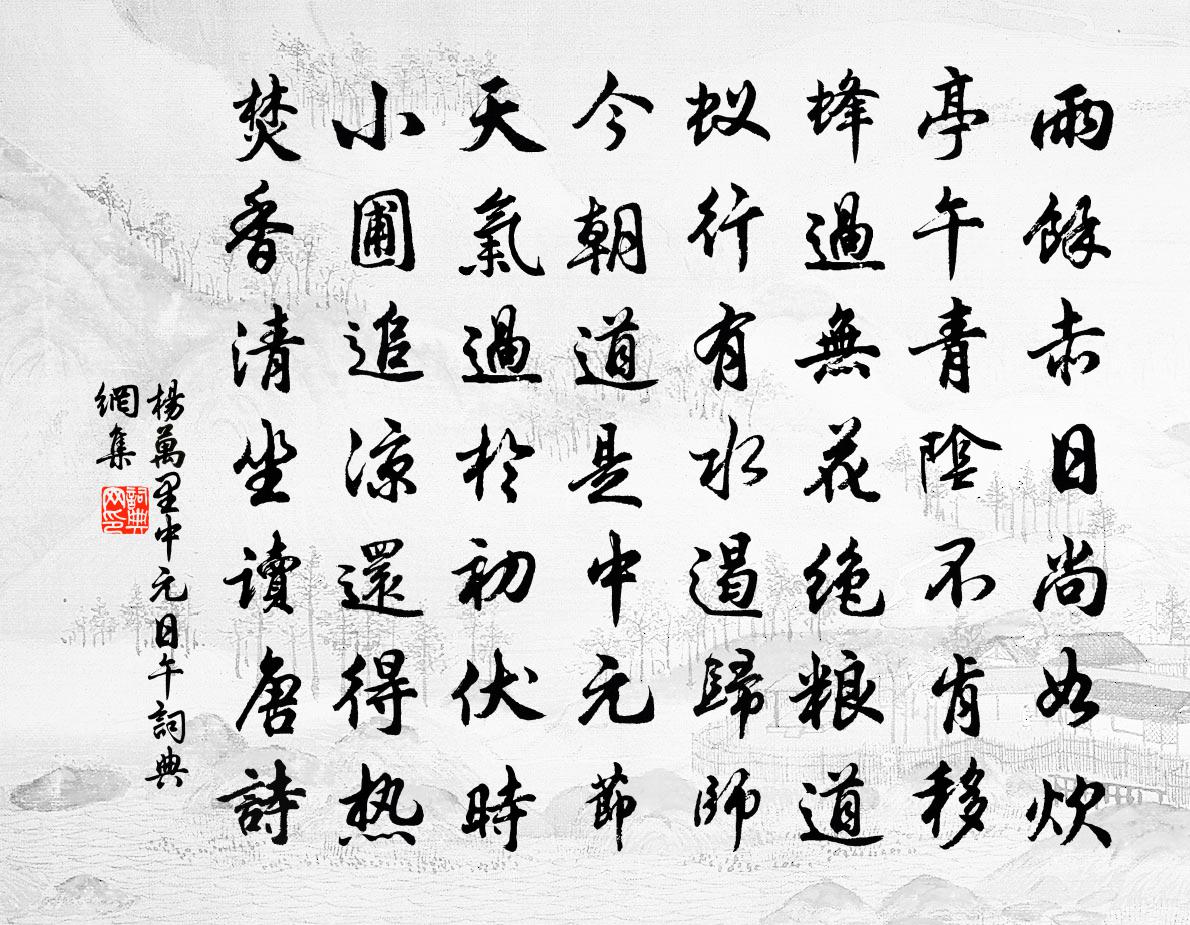 雨餘赤日尚如炊
亭午青陰不肯移
蜂過無花絶粮道
蚁行有水遏歸師
今朝道是中元節
天氣過於初伏時
小圃追涼還得热
焚香清坐讀唐詩
楊萬里中元日午詞典
網集
詞典
网印